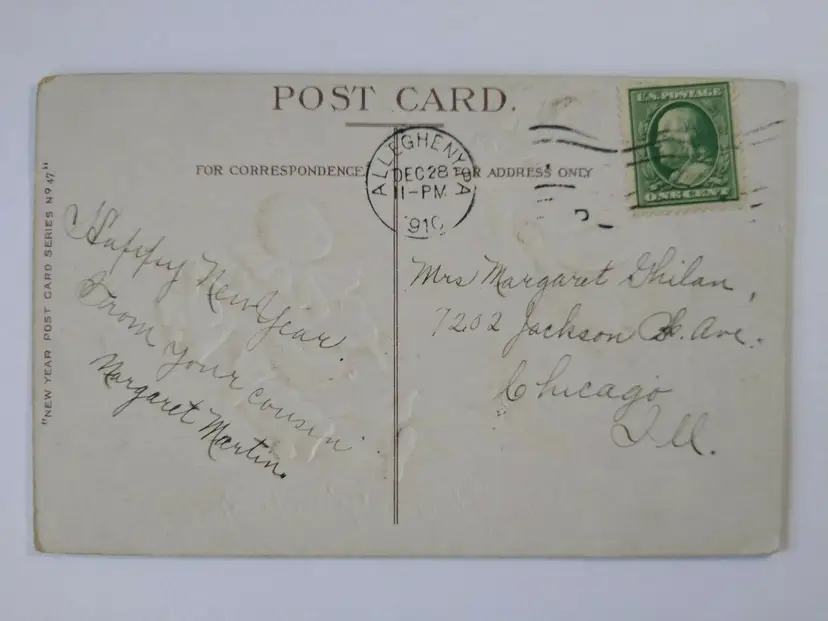 POST CARD.
FOR CORRESPONDENCE
FOR ADDRESS ONLY
"NEW YEAR POST CARD SERIES Nº 47"
ALLEGHENY, PA
DEC 28
11-PM
1910
U.S. POSTAGE
ONE CENT
Happy New Year.
From your cousin
Margaret Martin.
Mrs Margaret Ghilan,
7202 Jackson Ave.
Chicago
Ill.